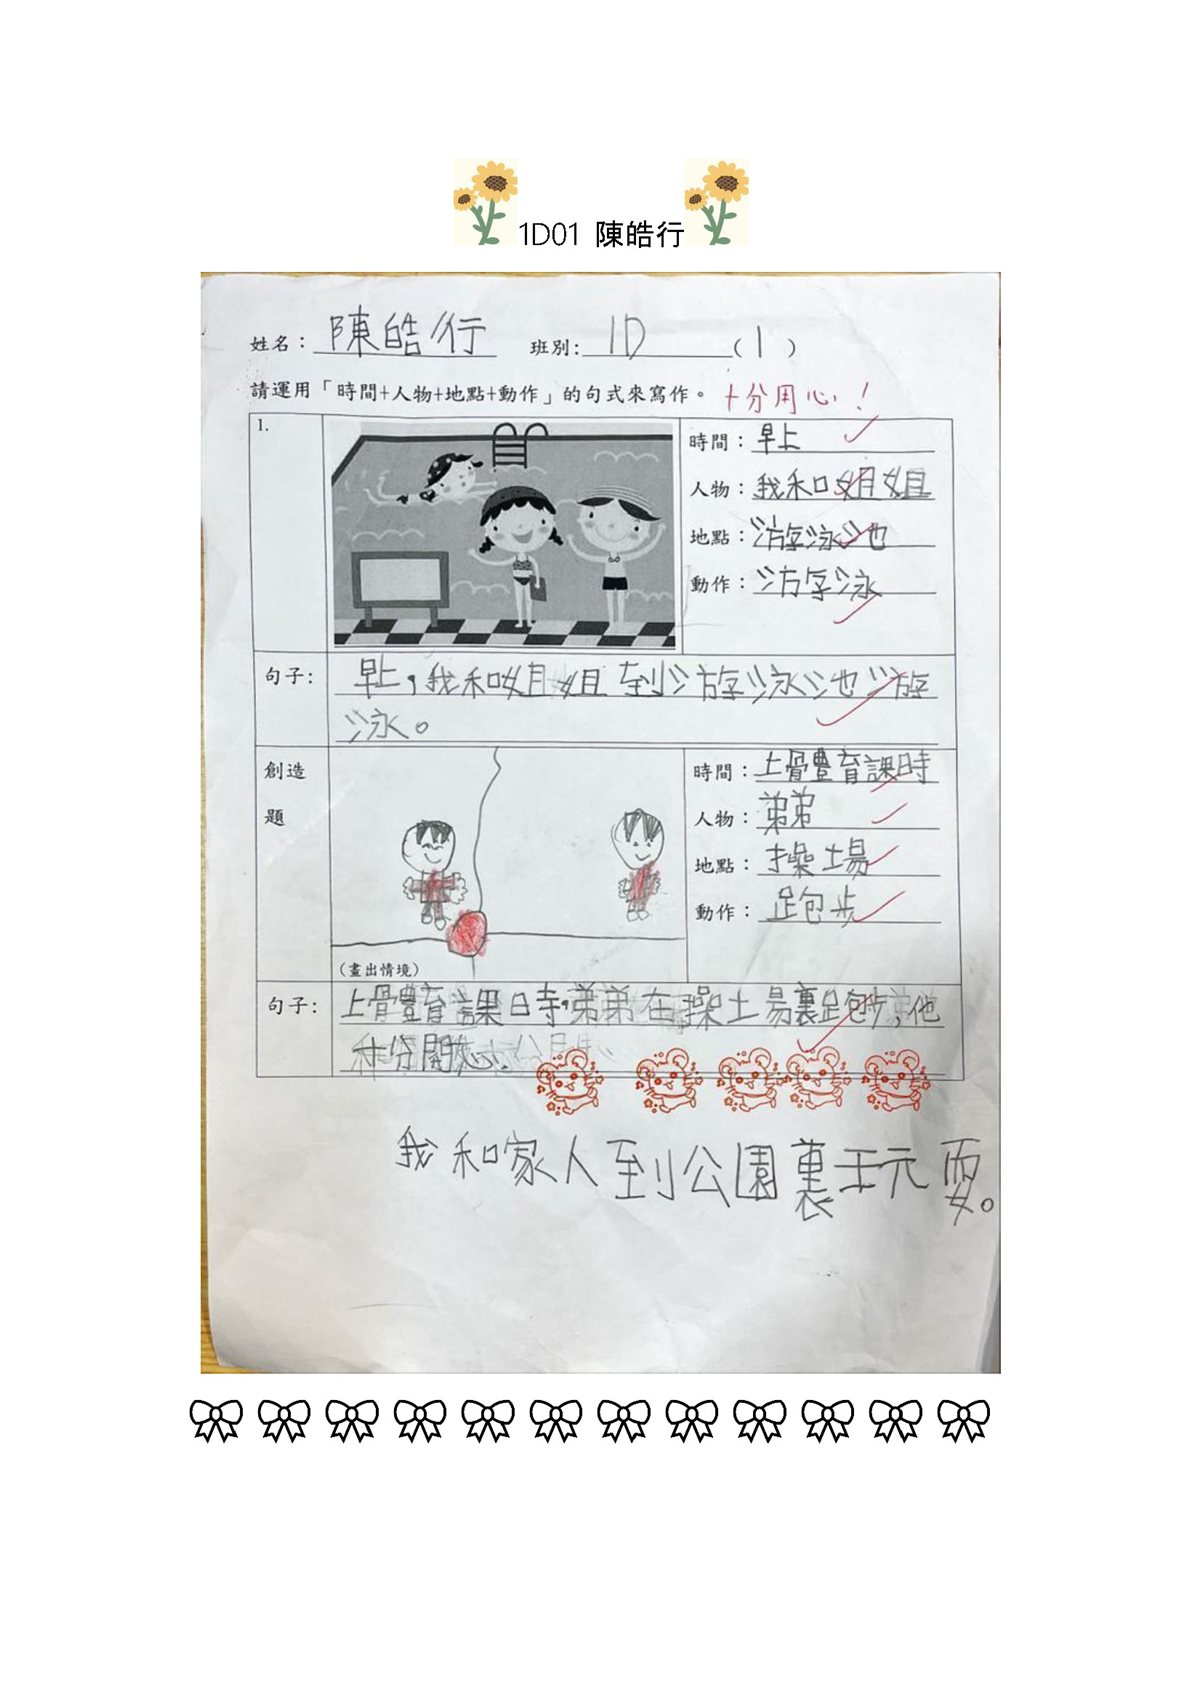 1D01 陳皓行
姓名：陳皓行 班別:1D(1)
請運用「時間+人物+地點+動作」的句式來寫作。 十分用心！
1.
時間：早上
人物：我和姐姐
地點：游泳池
動作：游泳
句子: 早上，我和姐姐到游泳池游
泳。
創造
題
時間：上體育課時
人物：弟弟
地點：操場
動作：跑步
(畫出情境)
句子: 上體育課時，弟弟在操場裏跑步，他
十分開心。
我和家人到公園裏玩耍。